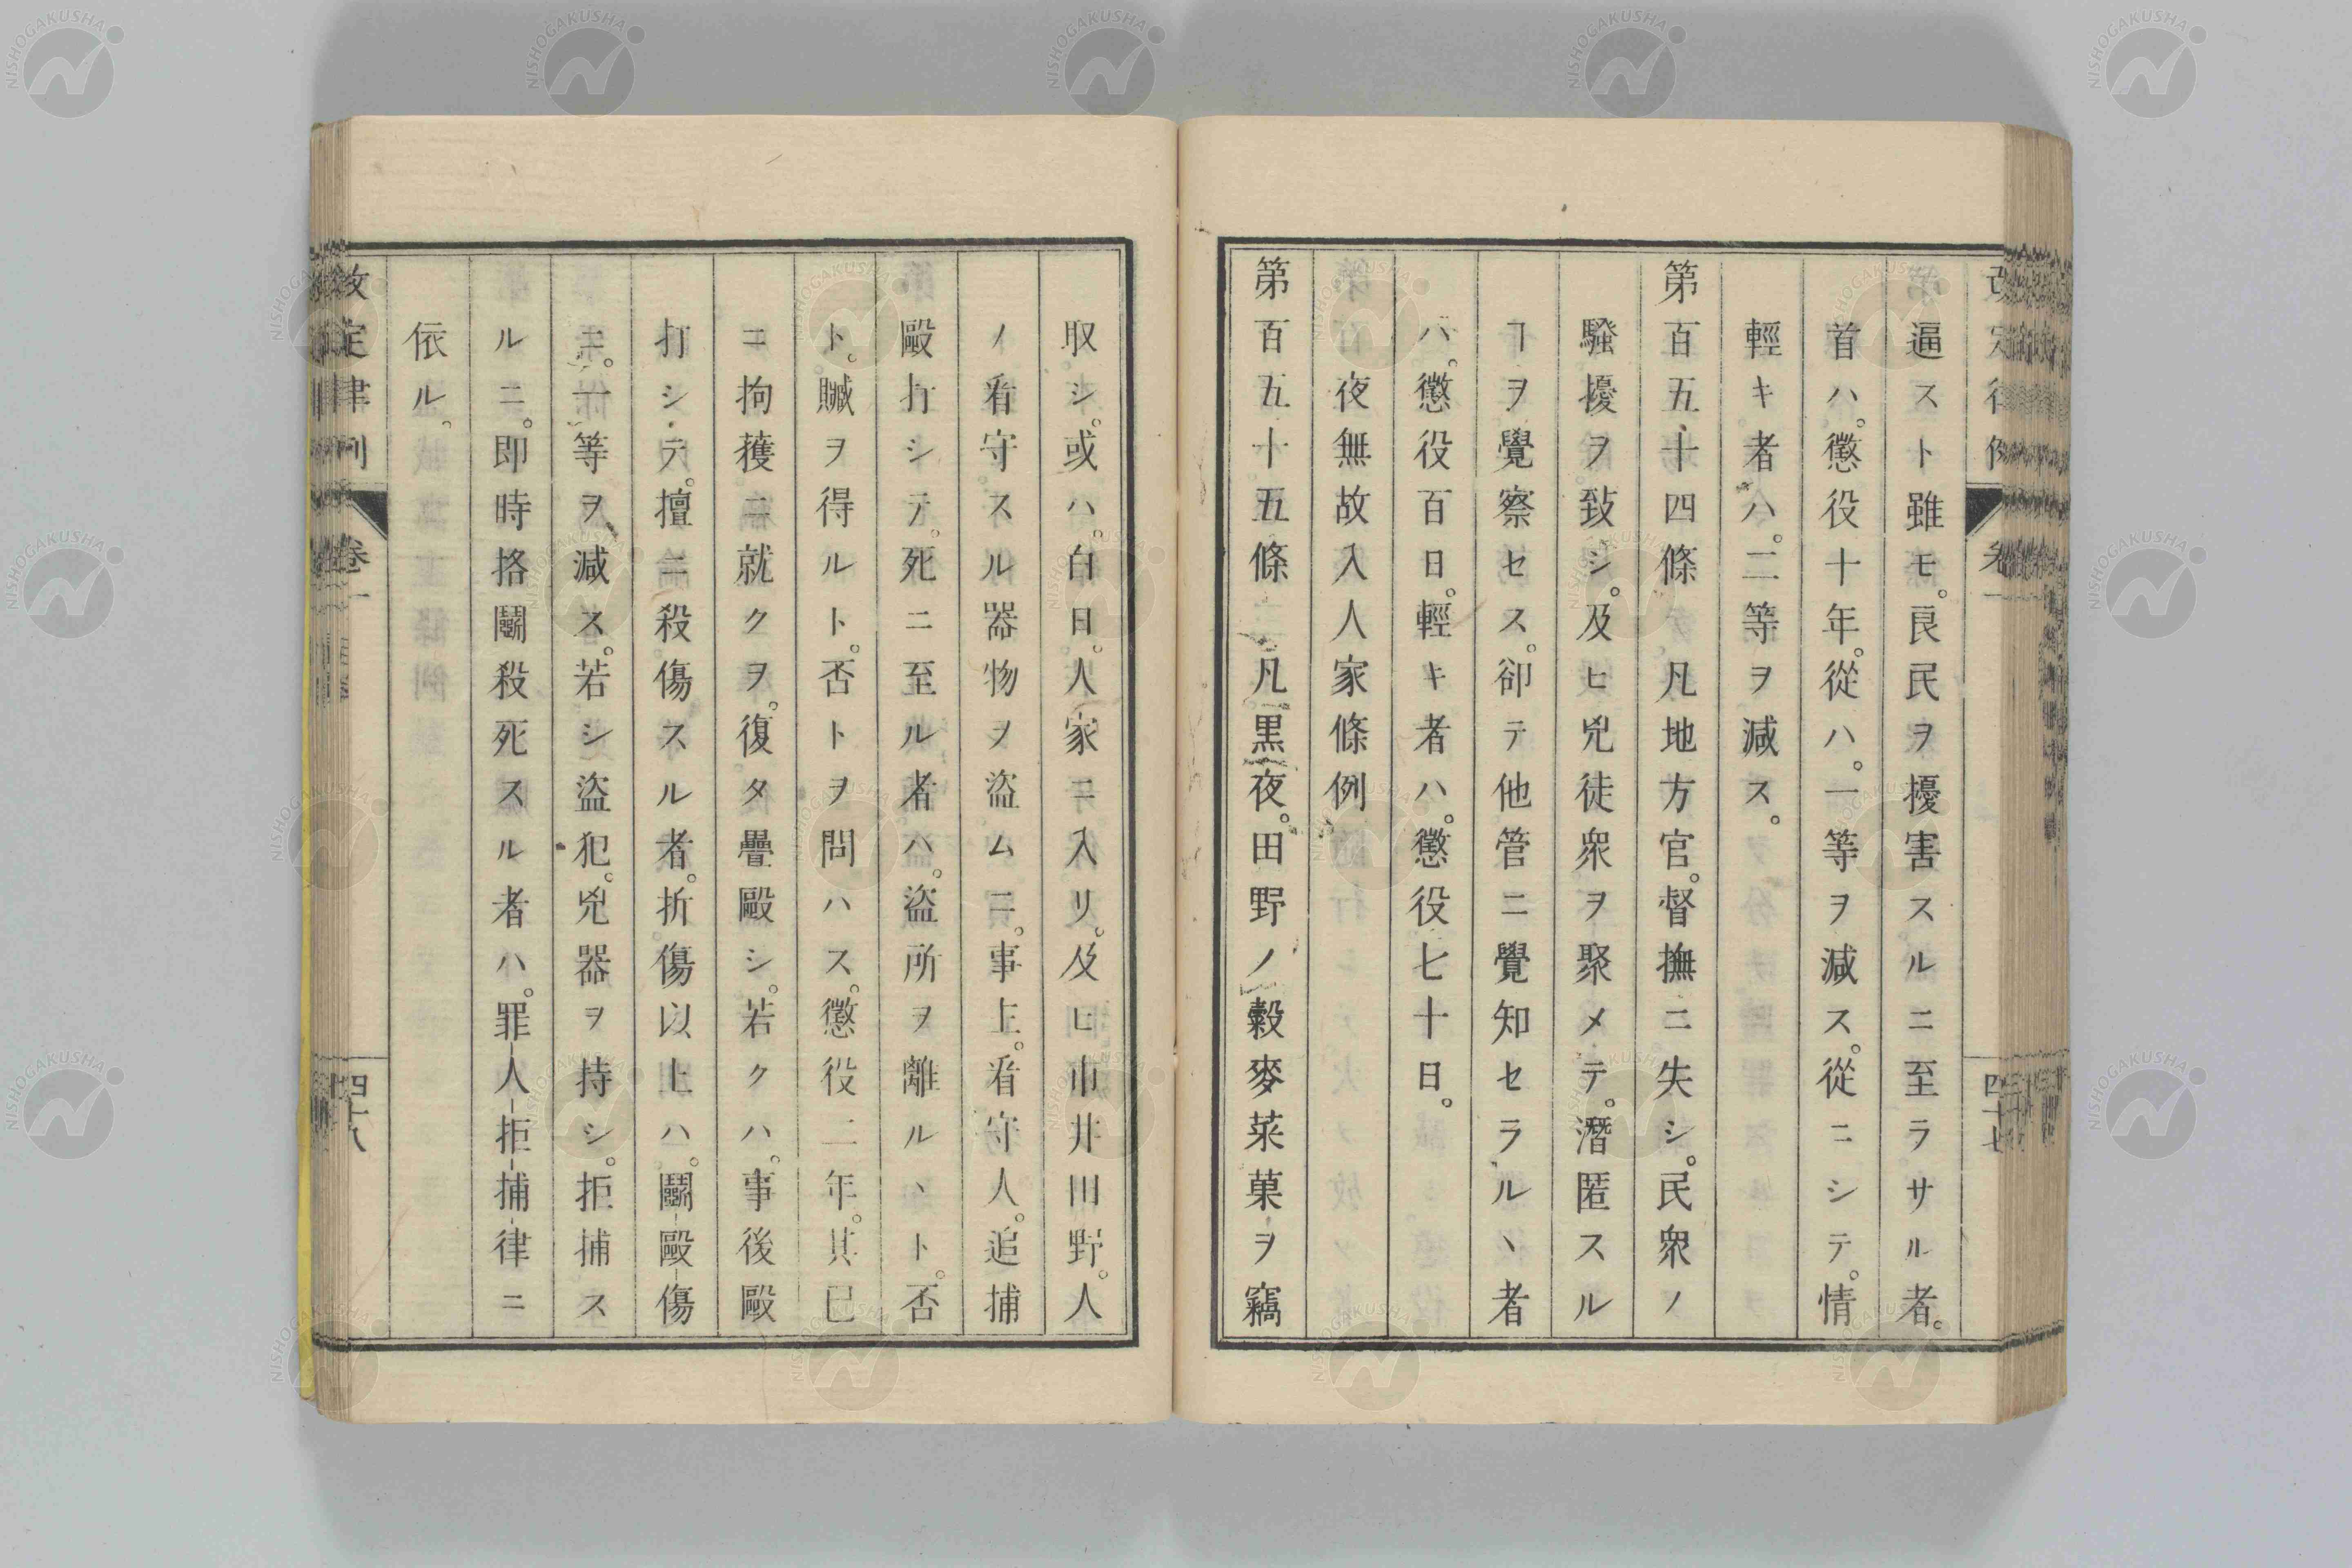 改定律例 卷一 四十七
逼スト雖モ。良民ヲ擾害スルニ至ラサル者。
首ハ。懲役十年。從ハ。一等ヲ減ス。從ニシテ。情
輕キ者ハ。二等ヲ減ス。
第百五十四條 凡地方官。督撫ニ失シ。民衆ノ
騷擾ヲ致シ。及ヒ兇徒衆ヲ聚メテ。潛匿スル
ヿヲ覺察セス。卻テ他管ニ覺知セラルヽ者
ハ。懲役百日。輕キ者ハ。懲役七十日。
夜無故入人家條例
第百五十五條 凡黒夜。田野ノ穀麥菜菓ヲ竊
取シ。或ハ。白日。人家ニ入リ。及ヒ市井田野。人
ノ看守スル器物ヲ盜ムニ。事上。看守人。追捕
毆打シテ。死ニ至ル者ハ。盜所ヲ離ルヽト。否
ト。贓ヲ得ルト。否トヲ問ハス。懲役二年。其已
ニ拘獲ニ就クヲ。復タ疊毆シ。若クハ。事後毆
打シテ。擅ニ殺傷スル者。折傷以上ハ。鬭毆傷
ニ。一等ヲ減ス。若シ盜犯。兇器ヲ持シ。拒捕ス
ルニ。即時挌鬭殺死スル者ハ。罪人拒捕律ニ
依ル。
改定律例 卷一 四十八
NISHOGAKUSHA